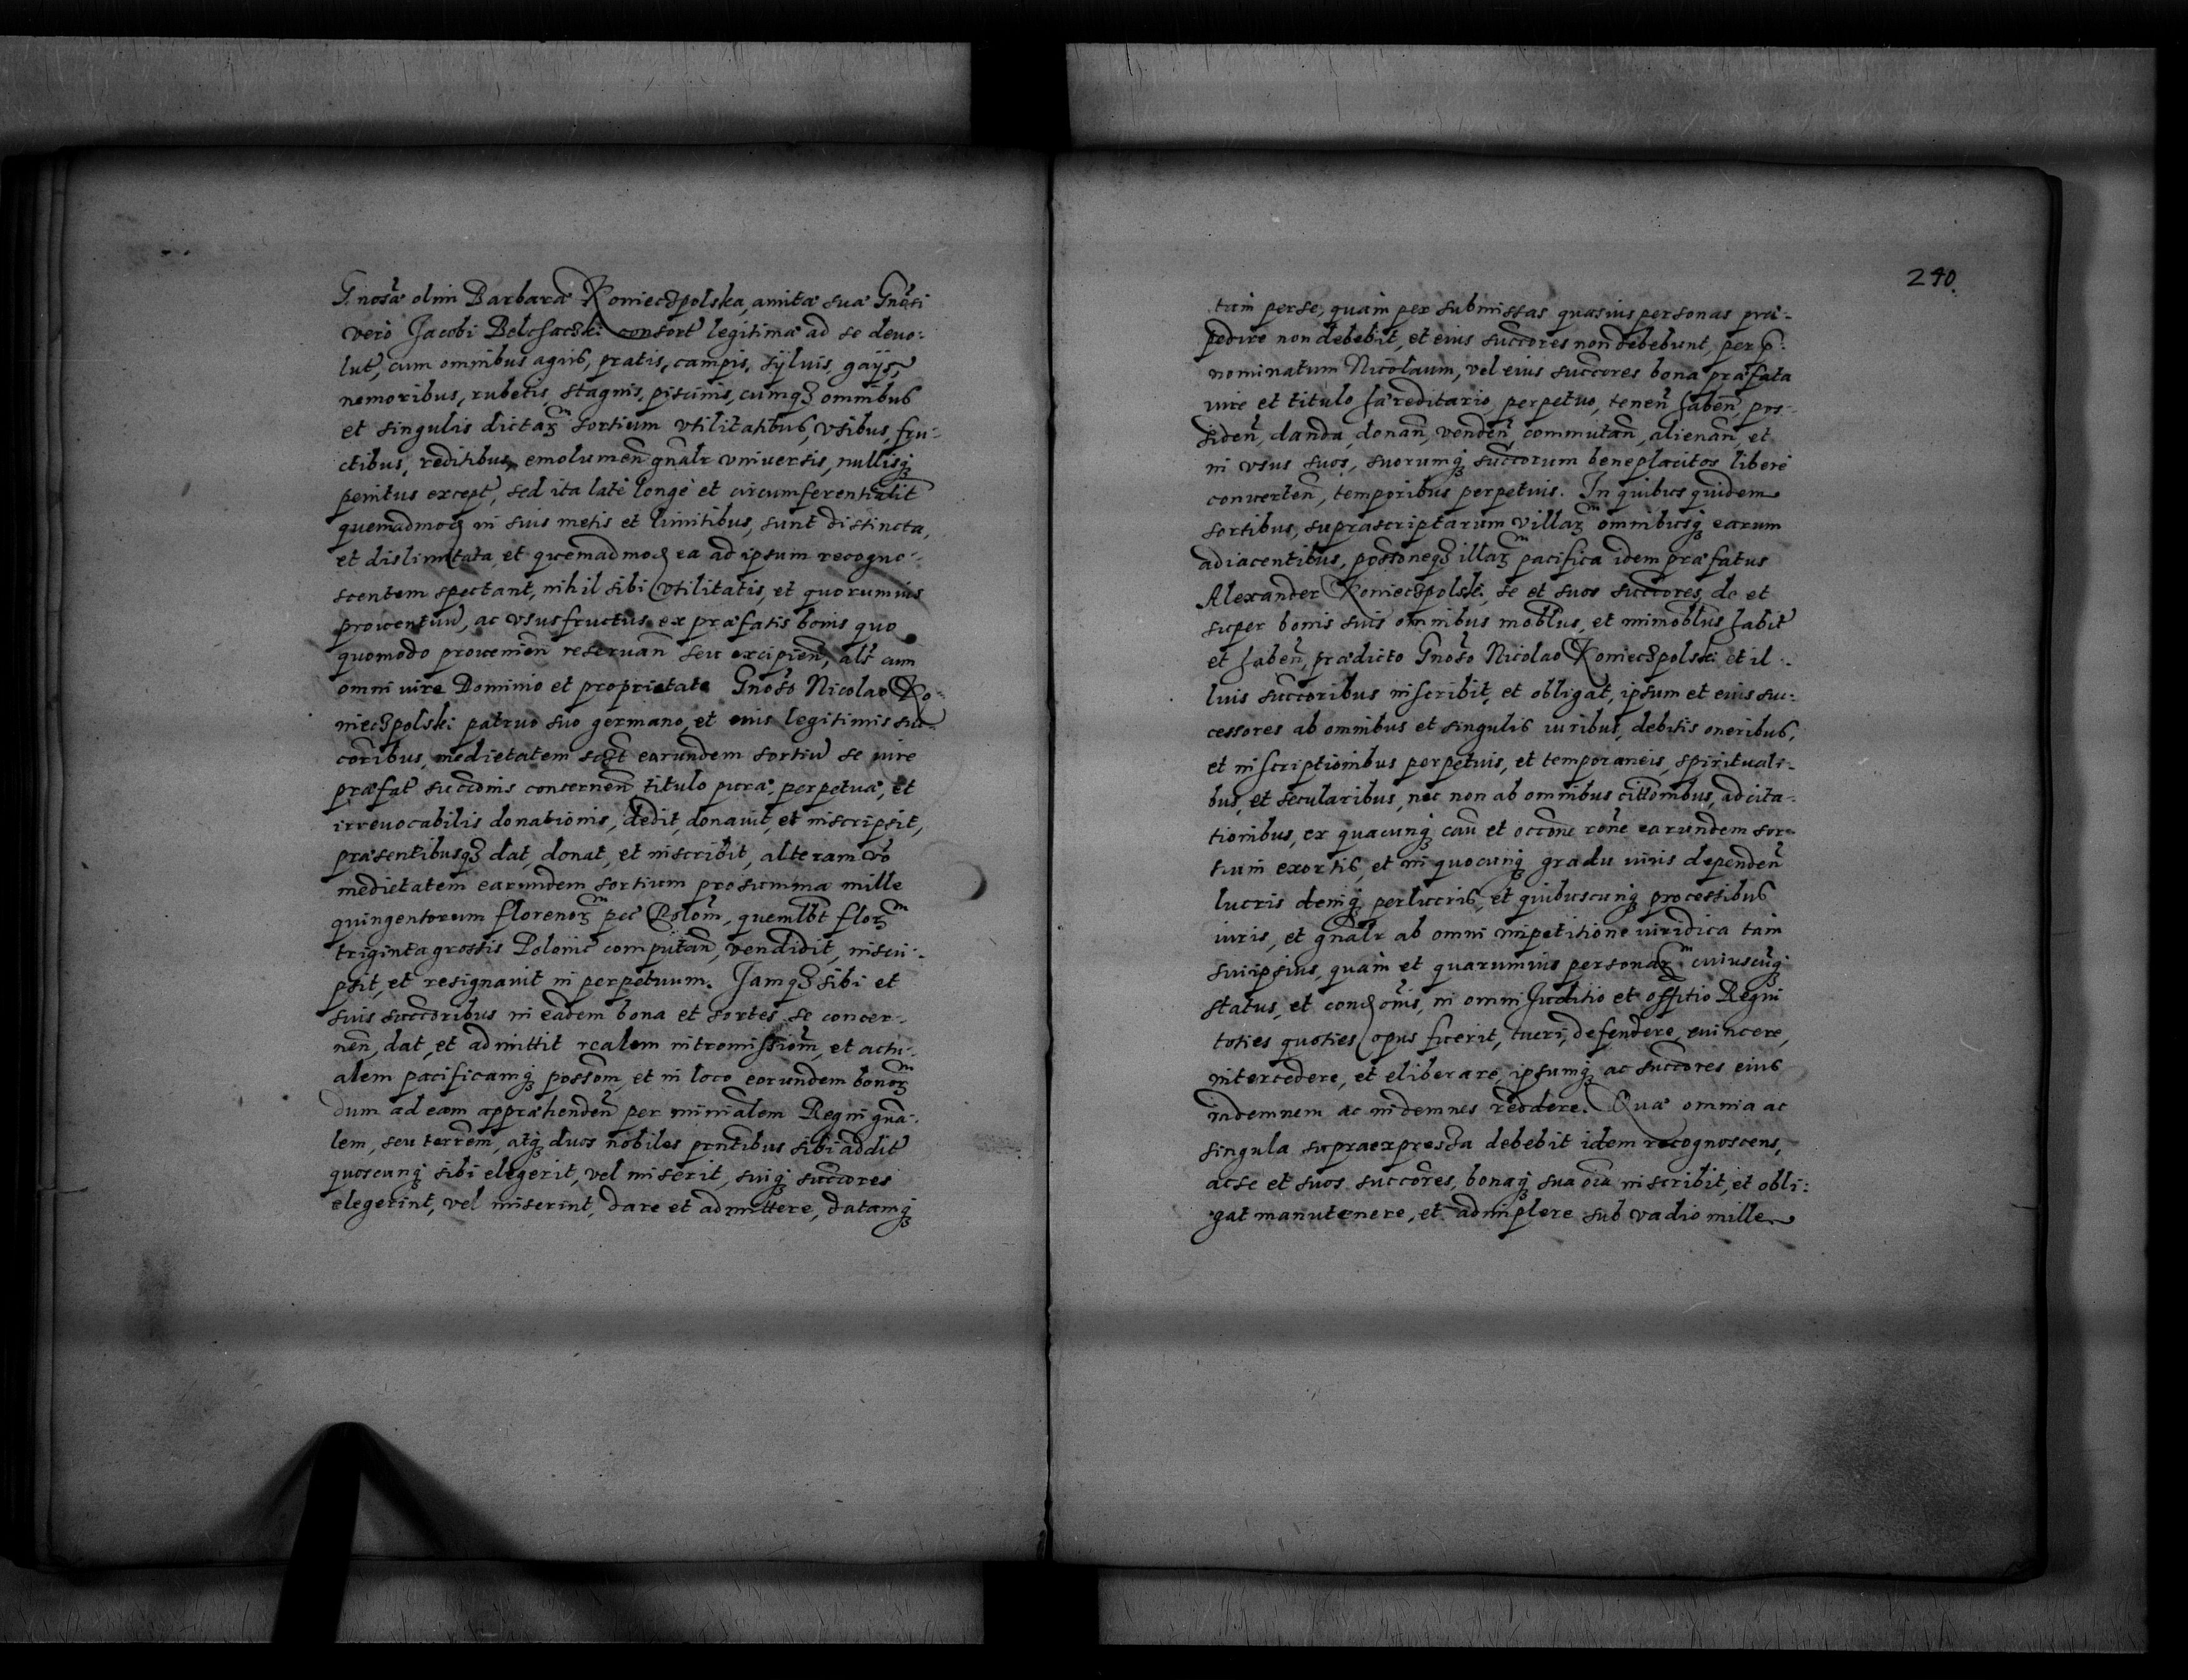 G.nosæ olim Barbaræ Konieczpolska, amitæ suæ Gnosi
vero Jacobi Belchaczki consort legitimæ ad se deuo:
lut, cum omnibus agris, pratis, campis, syluis, gaijs,
nemoribus, rubetis, stagnis, piscinis, cumqꝫ omnibus
et singulis dictaꝝ sortium vtilitatibus, vsibus, fru:
ctibus, reditibus, emolumen gnalr vniuersis, nullisqꝫ
penitus except, sed ita late longe et circumferentialit
quemadmod in suis metis et limitibus, sunt distincta,
et dislimitata, et quemadmod ea ad ipsum recogno:
scentem spectant, nihil sibi vtilitatis, et quorumuis
prouentuu, ac vsusfructus ex præfatis bonis quo
quomodo prouenien reseruan seu excipien, alr cum
omni iure Dominio et proprietate Gnoso Nicolao Ko:
nieczpolski patruo suo germano, et eius legitimis suc
coribus, medietatem sczt earundem sortiu se iure
præfat succonis concernen titulo puræ, perpetuæ, et
irreuocabilis donationis, dedit, donauit, et inscripsit,
præsentibusqꝫ dat, donat, et inscribit, alteram vo
medietatem earundem sortium pro summa mille
quingentorum florenoꝝ pec Polom, quemlbt floꝝ
triginta grossis Polonic computan, vendidit, inscri:
psit, et resignauit in perpetuum. Jamqꝫ sibi et
suis succoribus in eadem bona et sortes se concer:
nen, dat, et admittit realem intromissiom, et actu:
alem pacificamqꝫ possom, et in loco eorundem bonoꝝ
dum ad eam appræhenden per minialem Regni gna:
lem, seu terrem, atqꝫ duos nobiles prntibus sibi addit
quoscunqꝫ sibi elegerit, vel miserit, suiqꝫ succores
elegerint, vel miserint, dare et admittere, datamqꝫ
240.
tam per se, quam per submissas quasuis personas præ:
pedire non debebit, et eius succores non debebunt, per p:
nominatum Nicolaum, vel eius succores bona præfata
iure et titulo hæreditario, perpetuo, tenen haben, pos:
siden, danda, donan, venden, commutan, alienan, et
in vsus suos, suorumqꝫ succorum beneplacitos libere
conuerten, temporibus perpetuis. In quibus quidem
sortibus, suprascriptarum villaꝝ omnibusqꝫ earum
adiacentibus, possoneqꝫ illaꝝ pacifica idem præfatus
Alexander Konieczpolski, se et suos succores, de et
super bonis suis omnibus moblus, et immoblus habit
et haben, prædicto Gnoso Nicolao Konieczpolski et il:
luis succoribus inscribit, et obligat, ipsum et eius suc:
cessores ab omnibus et singulis iuribus, debitis oneribus,
et inscriptionibus perpetuis, et temporaneis, spirituali:
bus, et secularibus, nec non ab omnibus cittombus, adcita:
tionibus, ex quacunqꝫ cau et occone rone earundem sor:
tium exortis, et in quocunqꝫ gradu iuris dependen
lucris demqꝫ perlucris, et quibuscunqꝫ processibus
iuris, et gnalr ab omni impetitione iuridica tam
suiipsius, quam et quarumuis personaꝝ cuiuscunqꝫ
status, et condonis, in omni Juditio et offitio Regni
toties quoties opus fuerit, tueri, defendere, euincere,
intercedere, et eliberare, ipsumqꝫ ac succores eius
indemnem ac indemnes reddere. Quæ omnia ac
singula supraexpressa debebit idem recognoscens,
ac se et suos succores, bonaqꝫ sua oia inscribit, et obli:
gat manutenere, et adimplere sub vadio mille